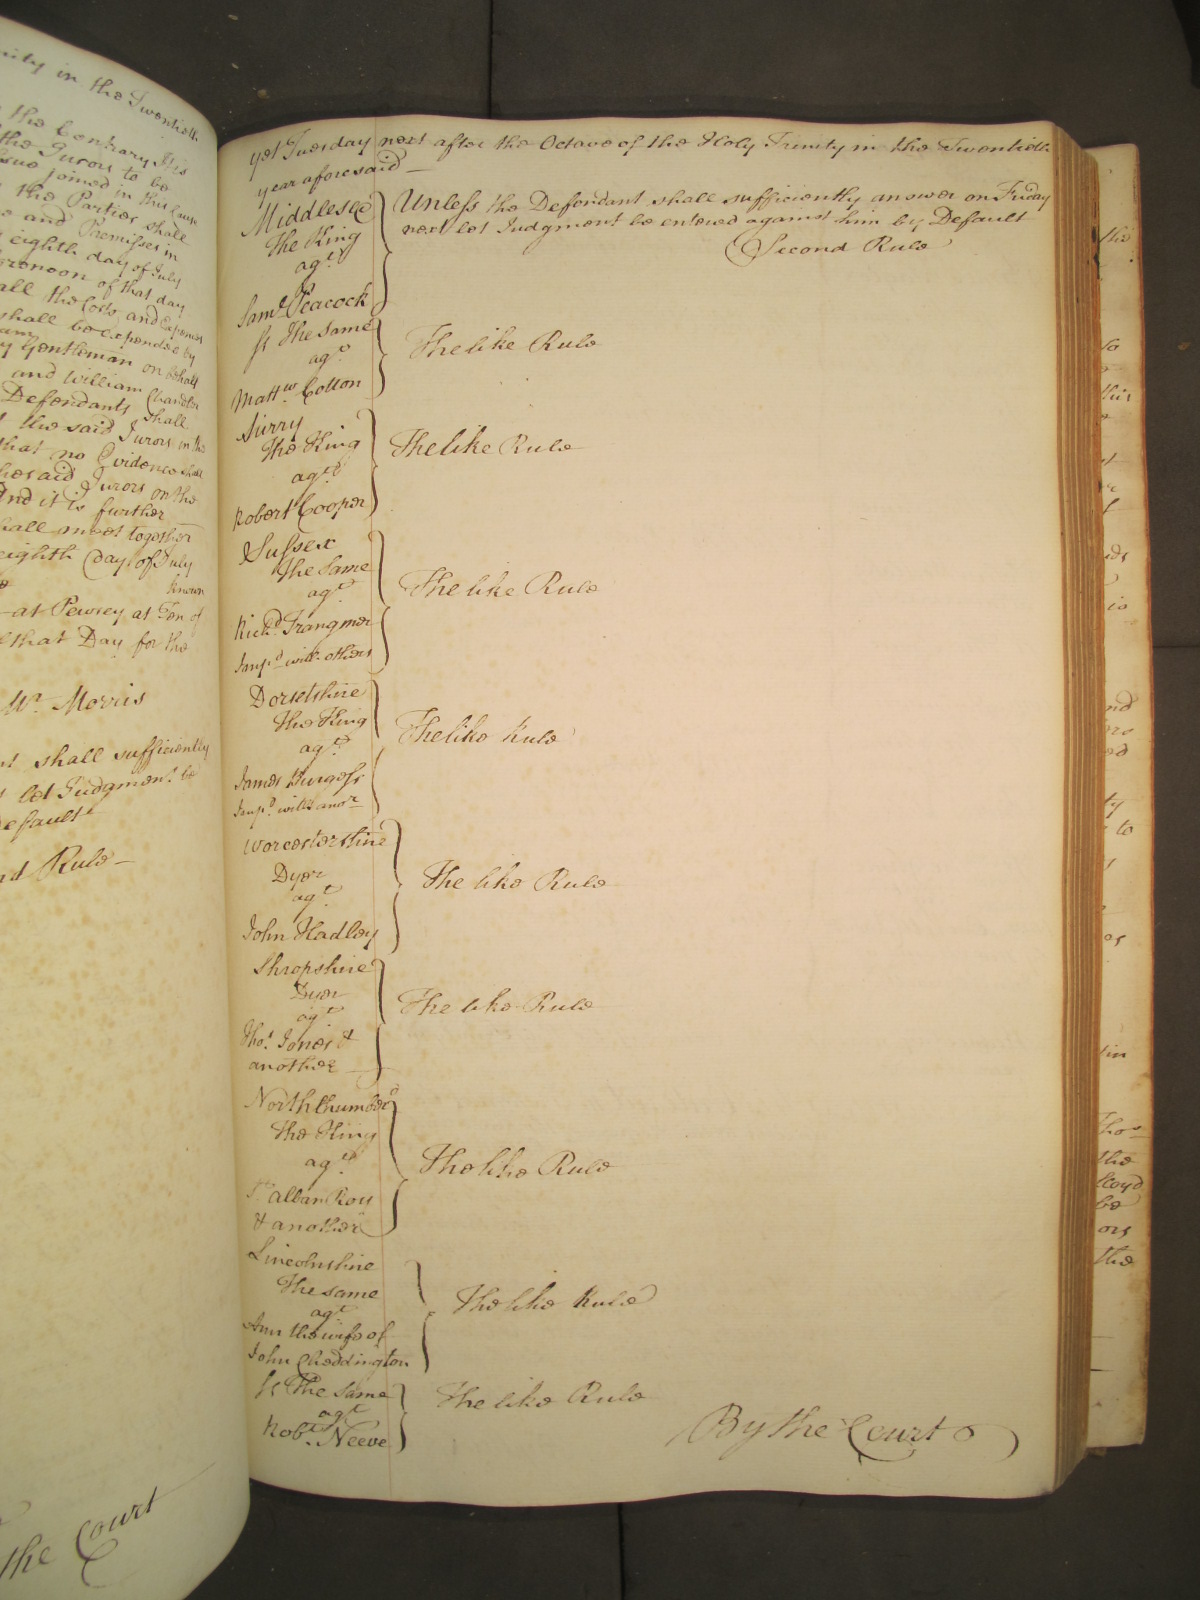 nity in the Twentieth
the Contrary It is
the Jurors to be
Issue joined in this Cause
the Parties shall
and Premisses in
eighth day of July
forenoon of that day
all the Costs and Expences
shall be expended by
Gentleman on behalf
and William Chandler
Defendants shall
the said Jurors in the
that no Evidence shall
the said Jurors on the
And it is further
shall meet together
eighth Day of July
known
at Pewsey at Ten of
that Day for the
Mr. Morris
shall sufficiently
let Judgment be
Default
Rule
the Court
yet Tuesday next after the Octave of the Holy Trinity in the Twentieth
year aforesaid
Middlesex
The King
agt.
Saml. Peacock
Unless the Defendant shall sufficiently answer on Friday
next let Judgment be entered against him by Default
Second Rule
The Same
agt.
Mattw. Cotton
The like Rule
Surry
The King
agt.
Robert Cooper
The like Rule
Sussex
The Same
agt.
Richd. Trangmer
Impd. with others
The like Rule
Dorsetshire
The King
agt.
James Burgess
Impd. with anor.
The like Rule
Worcestershire
Dyer
agt.
John Hadley
The like Rule
Shropshire
Dyer
agt.
Thos. Jones &
another
The like Rule
Northumberd
The King
agt.
Alban Roy
& another
The like Rule
Lincolnshire
The Same
agt.
Ann the wife of
John Cheddington
The like Rule
The Same
agt.
Robt. Neeve
The like Rule
By the Court